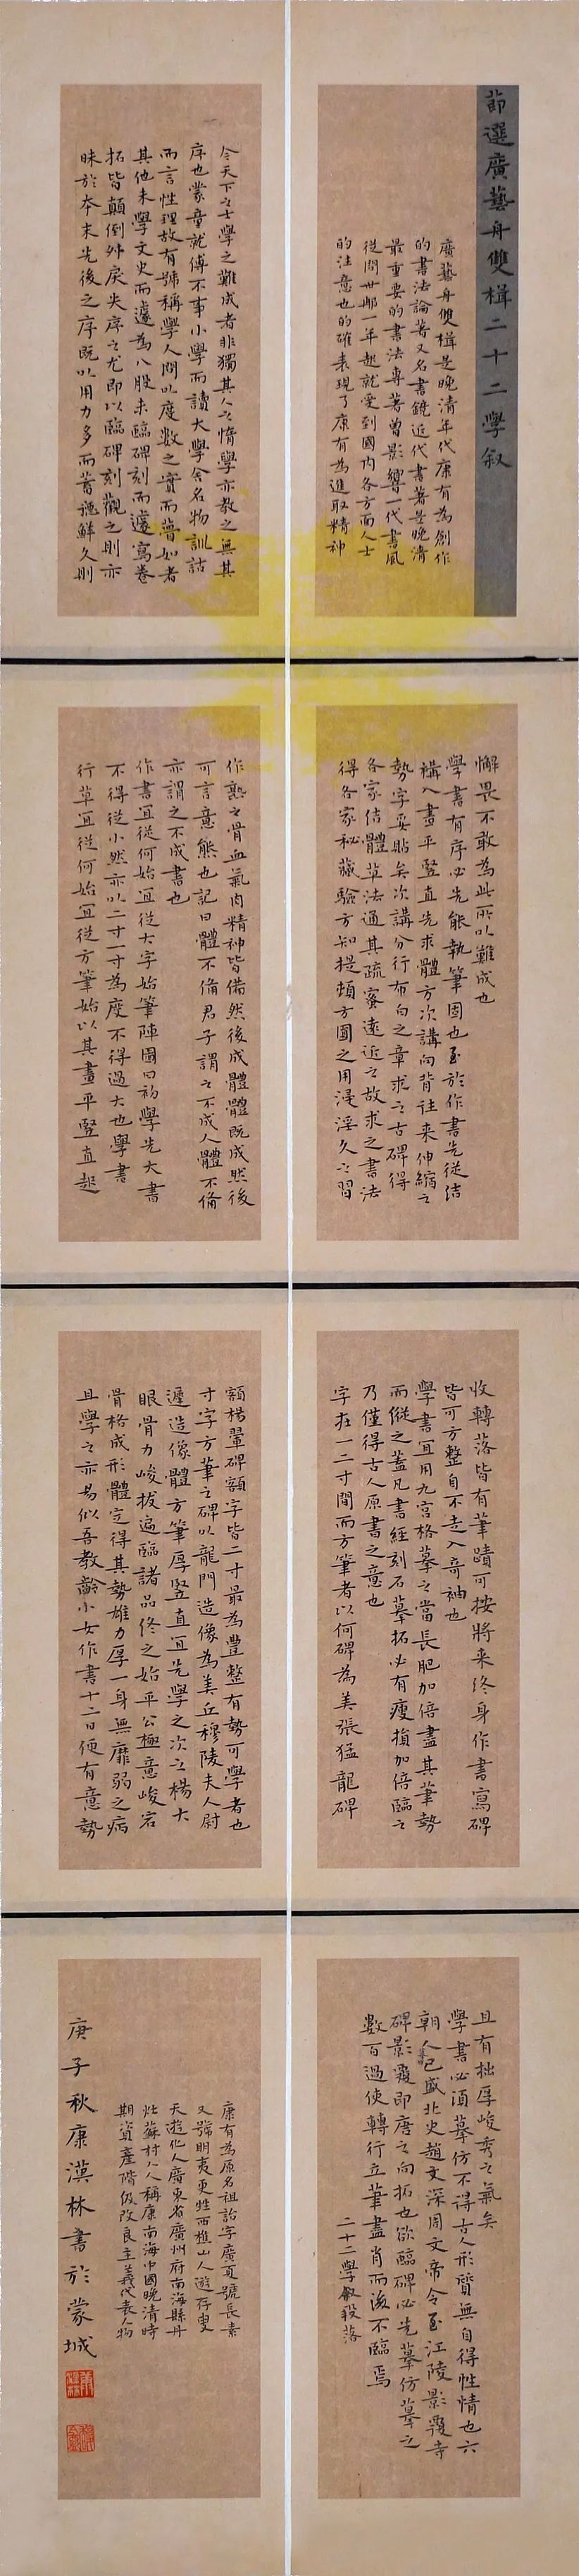 節選廣藝舟雙楫二十二學叙
廣藝舟雙楫是晚清年代康有為創作
的書法論著又名書鏡近代書著是晚清
最重要的書法專著曾影響一代書風
從問世那一年起就受到國內各方面人士
的注意也的確表現了康有為進取精神
今天下之士學之難成者非獨其人之惰學亦教之無其
序也蒙童就傅不事小學而讀大學舍名物訓詁
而言性理故有號稱學人問以度數之實而瞢如者
其他未學文史而遽為八股未臨碑刻而遽寫卷
拓皆顛倒舛戾失序之尤即以臨碑刻觀之則亦
昧於本末先後之序既以用力多而蓄鮮久則
懈畏不敢為此所以難成也
學書有序必先能執筆固也至於作書先從結
構入畫平豎直先求體方次講向背往来伸縮之
勢字妥貼矣次講分行布白之章求之古碑得
各家結體草法通其疏密遠近之故求之書法
得各家秘藏驗方知提頓方圓之用浸淫久之習
作熟之骨血氣肉精神皆備然後成體體既成然後
可言意態也記曰體不備君子謂之不成人體不備
亦謂之不成書也
作書宜從何始宜從大字始筆陣圖曰初學先大書
不得從小然亦以二寸一寸為度不得過大也學書
行草宜從何始宜從方筆始以其畫平豎直起
收轉落皆有筆蹟可按將来終身作書寫碑
皆可方整自不走入奇衺也
學書宜用九宮格摹之當長肥加倍盡其筆勢
而縱之蓋凡書經刻石摹拓必有瘦損加倍臨之
乃僅得古人原書之意也
字在一二寸間而方筆者以何碑為美張猛龍碑
額楊翬碑額字皆二寸最為豐整有勢可學者也
寸字方筆之碑以龍門造像為美丘穆陵夫人尉
遲造像體方筆厚豎直宜先學之次之楊大
眼骨力峻拔遍臨諸品終之始平公極意峻宕
骨格成形體定得其勢雄力厚一身無靡弱之病
且學之亦易似吾教齡小女作書十二日便有意勢
且有拙厚峻秀之氣矣
學書必須摹仿不得古人形質無自得性情也六
朝人已盛北史趙文深周文帝令至江陵影覆寺
碑影覆即唐之向拓也欲臨碑必先摹仿摹之
數百過使轉行立筆盡肖而後不臨焉
二十二學叙段落
康有為原名祖詒字廣夏號長素
又號明夷更甡西樵山人遊存叟
天遊化人廣東省廣州府南海縣丹
灶蘇村人人稱康南海中國晚清時
期資產階級改良主義代表人物
庚子秋康漢林書於蒙城